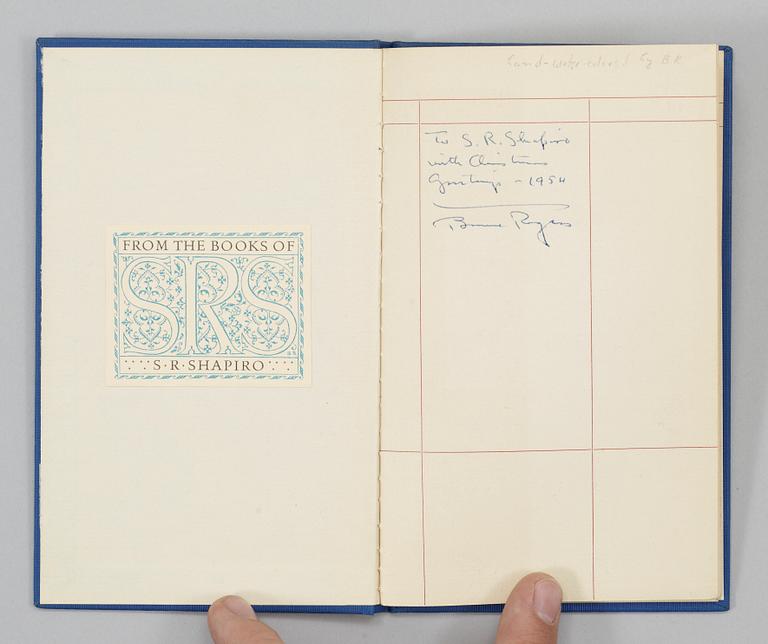 FROM THE BOOKS OF
SRS
S·R·SHAPIRO
hand-water-colored by BR
To S. R. Shapiro
with Christmas
Greetings - 1954
Bruce Rogers